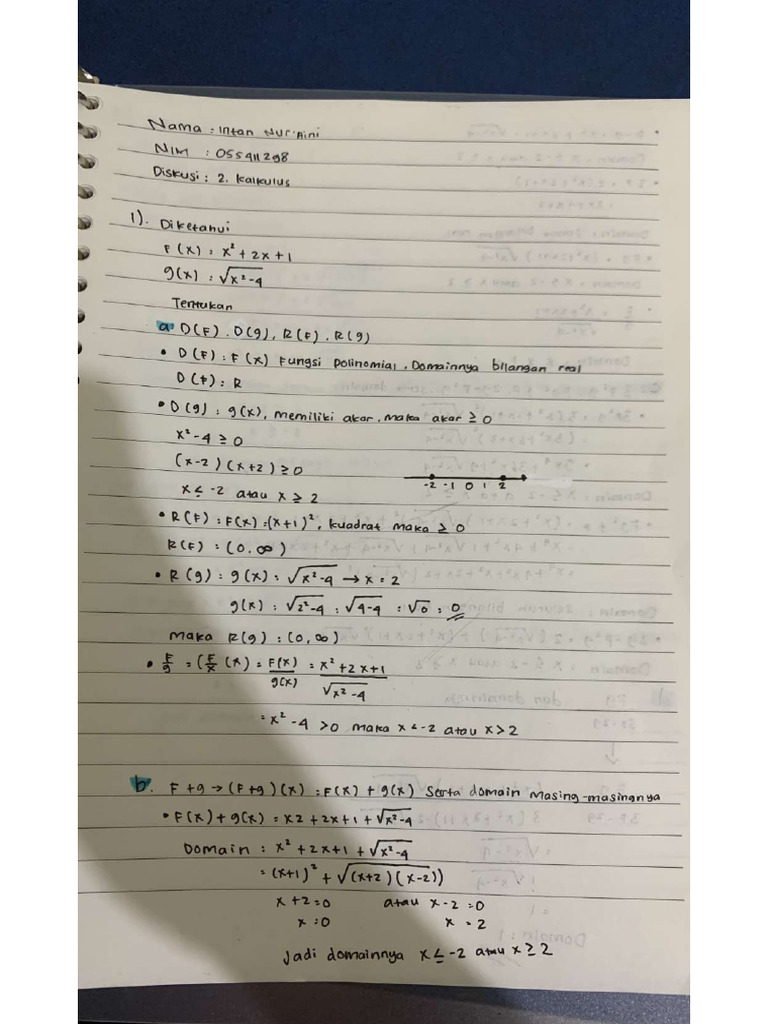 Nama : Intan Nur'Aini
NIM : 055911298
Diskusi : 2. Kalkulus
1). Diketahui
F(x) : x² + 2x + 1
g(x) : √x²-4
Tentukan
a. D(F). D(g), R(F). R(g)
• D(F) : F(x) Fungsi polinomial. Domainnya bilangan real
D(F) : R
• D(g) : g(x), memiliki akar, maka akar ≥ 0
x²-4 ≥ 0
(x-2) (x+2) ≥ 0
-2 -1 0 1 2
x ≤ -2 atau x ≥ 2
• R(F) : F(x) : (x+1)², kuadrat maka ≥ 0
R(F) : (0, ∞)
• R(g) : g(x) : √x²-4 → x = 2
g(x) : √2²-4 : √4-4 : √0 : 0
maka R(g) : (0, ∞)
• F/g = (F/x (x) = F(x)/g(x) = x²+2x+1/√x²-4
= x² - 4 > 0 maka x < -2 atau x > 2
b. F+g → (F+g)(x) : F(x) + g(x) serta domain masing-masingnya
• F(x) + g(x) = x2 + 2x + 1 + √x²-4
Domain : x² + 2x + 1 + √x²-4
= (x+1)² + √(x+2)(x-2))
x+2 = 0 atau x-2 = 0
x = 0 x = 2
Jadi domainnya x ≤ -2 atau x ≥ 2